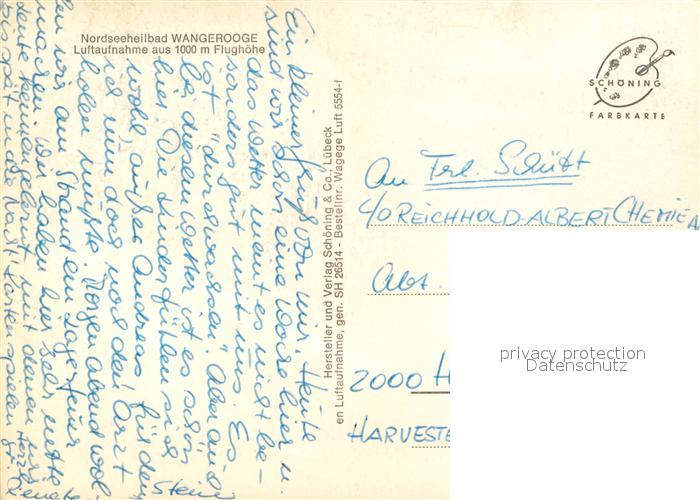 Nordseeheilbad WANGEROOGE
Luftaufnahme aus 1000 m Flughöhe
Ein kleiner Gruß von mir. Heute
sind wir schon eine Woche hier u.
das Wetter meint es nicht be-
sonders gut mit uns. Es
ist "durchwachsen". Aber auch
bei diesem Wetter ist es schön
hier. Die Kinder fühlen sich
wohl, außer Andreas für den
ich nun doch noch den Arzt
holen mußte. Morgen Abend wol-
len wir am Strand ein Lagerfeuer
machen. Wir haben hier sehr nette
Leute kennengelernt, mit denen wir
bis spät in die Nacht Karten spielen.
Herzl.
Renate
Hersteller und Verlag Schöning & Co., Lübeck
en Luftaufnahme, gen. SH 26514 - Bestellnr. Wagege Luft 5554-f
SCHÖNING
FARBKARTE
An Frl. Schütt
c/o REICHHOLD-ALBERT CHEMIE A
Abt.
2000 H
HARVESTE
privacy protection
Datenschutz